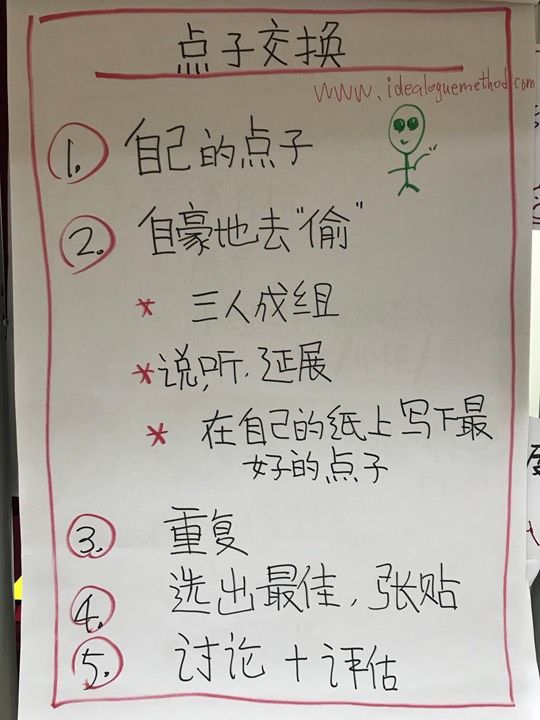 点子交换
www.idealoguemethod.com
1. 自己的点子
2. 自豪地去“偷”
* 三人成组
* 说,听.延展
* 在自己的纸上写下最
好的点子
3. 重复
4. 选出最佳,张贴
5. 讨论+评估